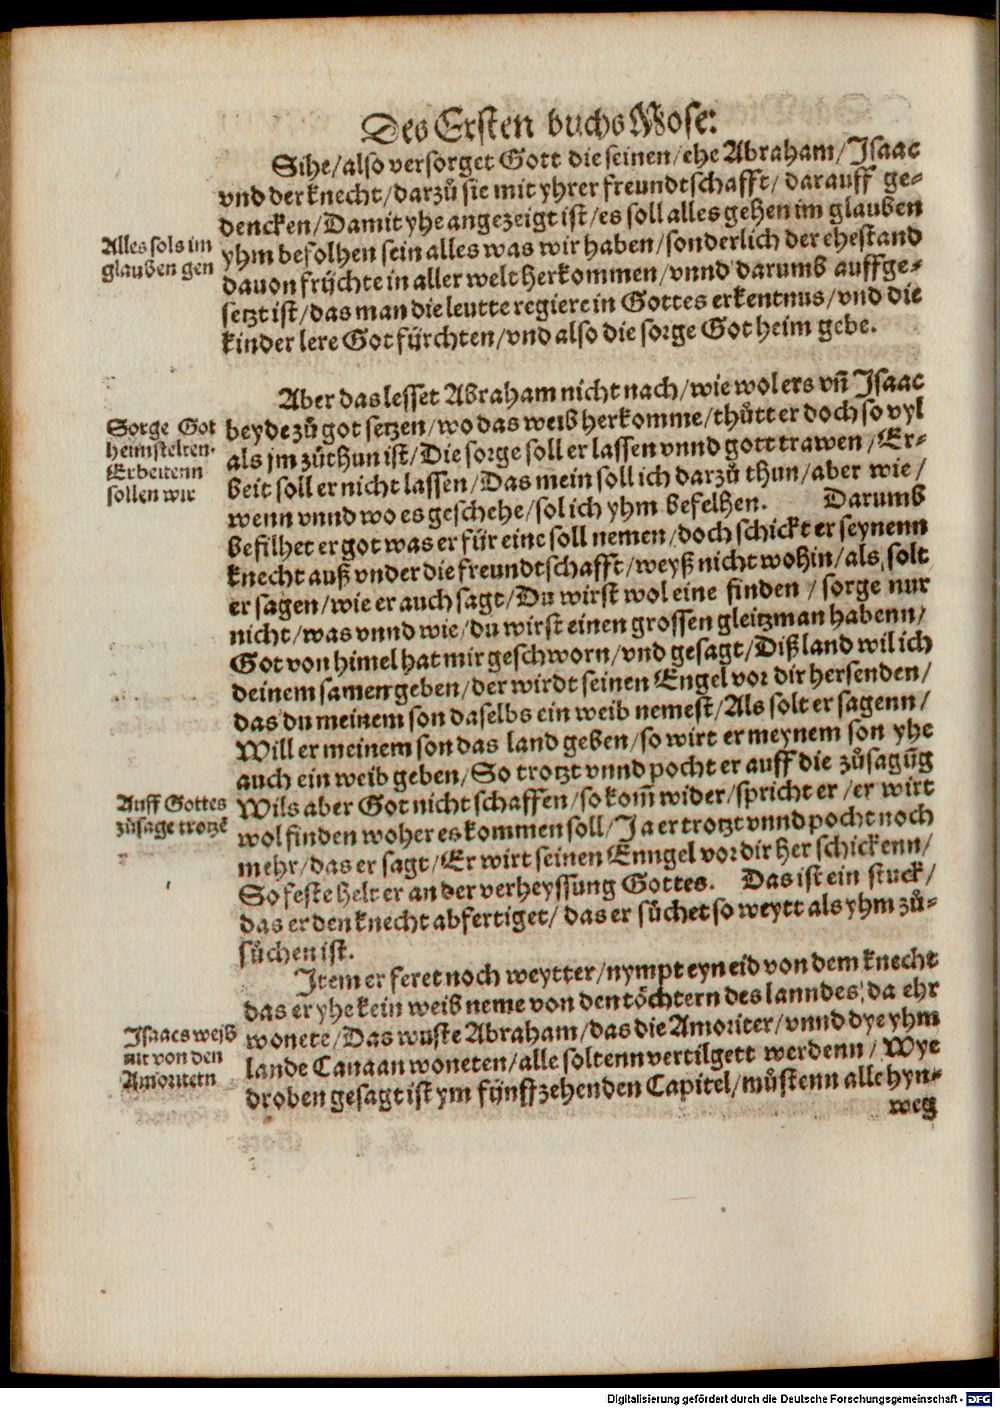 Des Ersten buchs Mose:
Sihe/also versorget Gott die seinen/ehe Abraham/Isaac
vnd der knecht/darzů sie mit yhrer freundtschafft/ darauff ge-
dencken/Damit yhe angezeigt ist/es soll alles gehen im glauben
Alles sols im
glauben gen
yhm befolhen sein alles was wir haben/sonderlich der ehestand
dauon früchte in aller welt herkommen/vnnd darumb auffge-
setzt ist/das man die leutte regiere in Gottes erkentnus/vnd die
kinder lere Got fürchten/vnd also die sorge Got heim gebe.
Aber das lesset Abraham nicht nach/wie wol ers vn̄ Isaac
Sorge Got
heimstellen.
Erbeitenn
sollen wir
beyde zů got setzen/wo das weib herkomme/thůtt er doch so vyl
als jm zůthun ist/Die sorge soll er lassen vnnd gott trawen/Er-
beit soll er nicht lassen/Das mein soll ich darzů thun/aber wie/
wenn vnnd wo es geschehe/sol ich yhm befelhen. Darumb
befilhet er got was er für eine soll nemen/doch schickt er seynenn
knecht auß vnder die freundtschafft/weyß nicht wohin/als solt
er sagen/wie er auch sagt/Du wirst wol eine finden/sorge nur
nicht/was vnnd wie/du wirst einen grossen gleitzman habenn/
Got von himel hat mir geschworn/vnd gesagt/Diß land wil ich
deinem samen geben/der wirdt seinen Engel vor dir hersenden/
das du meinem son daselbs ein weib nemest/Als solt er sagenn/
Will er meinem son das land geben/so wirt er meynem son yhe
auch ein weib geben/So trotzt vnnd pocht er auff die zůsagūg
Auff Gottes
zůsage trotzē
Wils aber Got nicht schaffen/so kom̄ wider/spricht er/er wirt
wol finden woher es kommen soll/Ja er trotzt vnnd pocht noch
mehr/das er sagt/Er wirt seinen Enngel vor dir her schickenn/
So feste helt er an der verheyssung Gottes. Das ist ein stuck/
das er den knecht abfertiget/das er sůchet so weytt als yhm zů-
sůchen ist.
Item er feret noch weytter/nympt eyn eid von dem knecht
das er yhe kein weib neme von den töchtern des lanndes/da ehr
Isaacs weib
nit von den
Amoritern
wonete/Das wuste Abraham/das die Amoriter/vnnd dye yhm
lande Canaan woneten/alle soltenn vertilgett werdenn/Wye
droben gesagt ist ym fünffzehenden Capitel/můstenn alle hyn-
weg
Digitalisierung gefördert durch die Deutsche Forschungsgemeinschaft - DFG